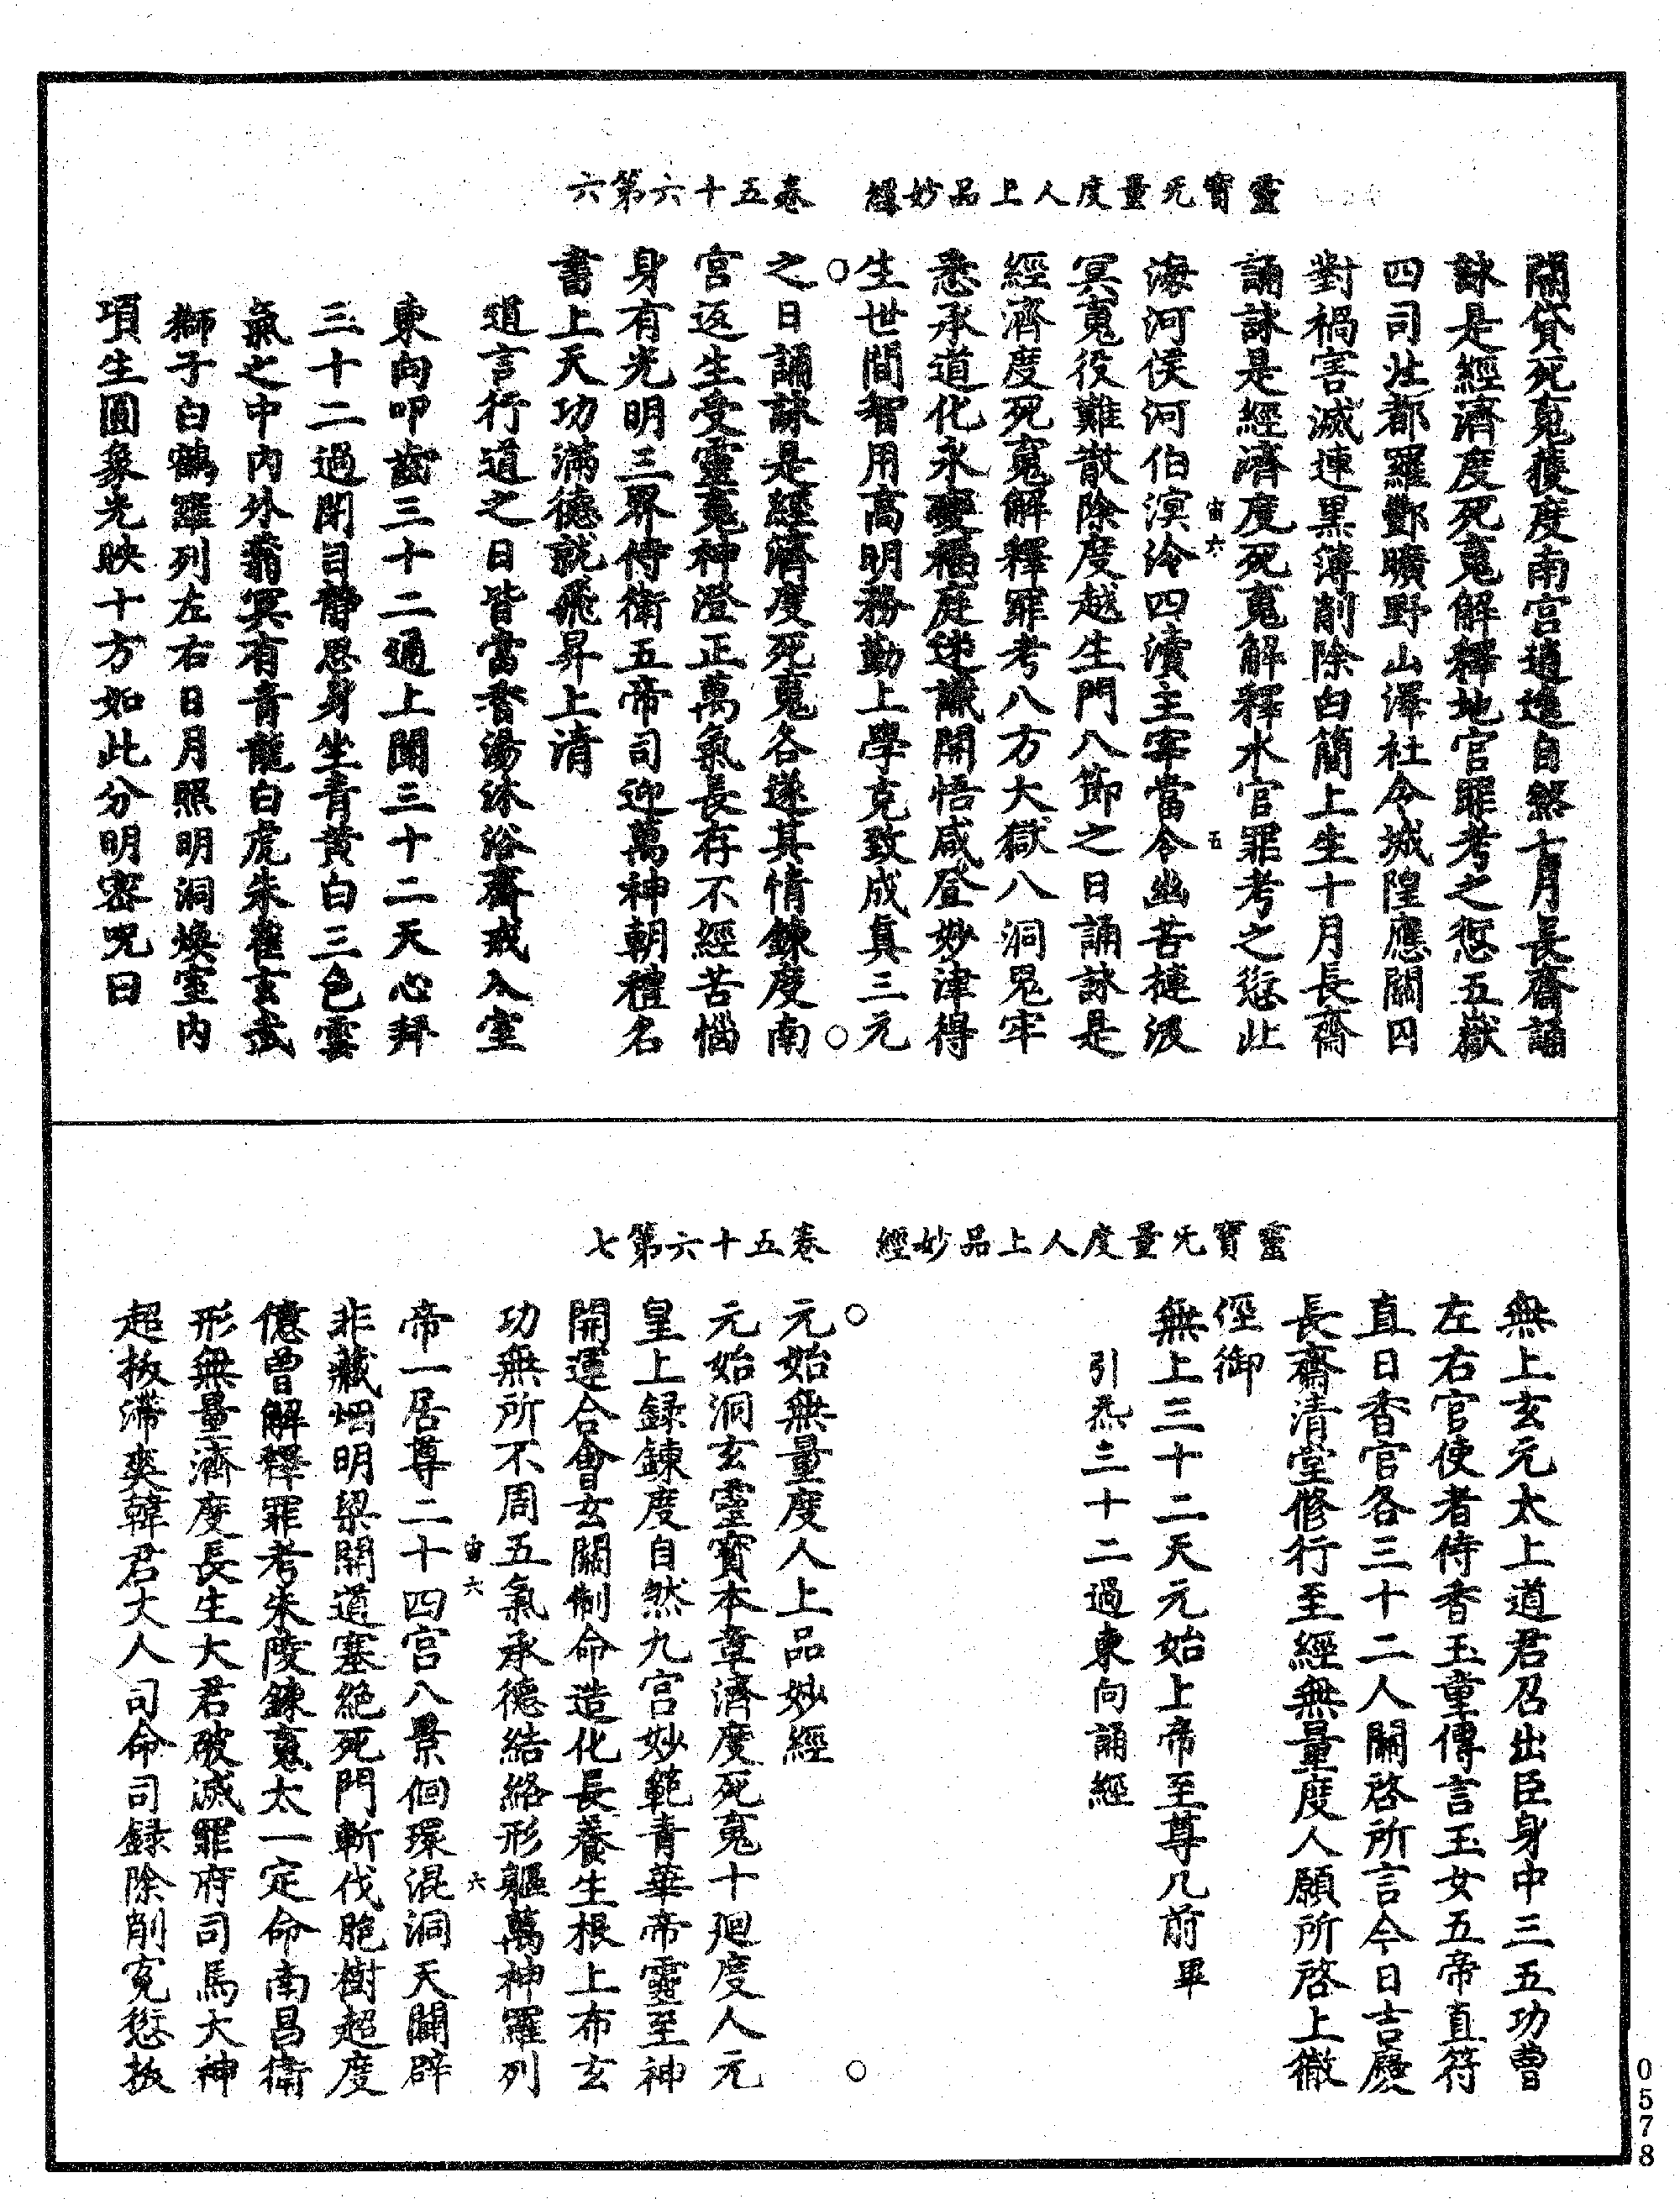 靈寶无量度人上品妙經　卷五十六第六
關貸死䰟獲度南宮逍遙自然七月長齋誦
詠是經濟度死䰟解釋地官罪考之愆五嶽
四司北都羅酆曠野山澤社令城隍應關囚
對禍害滅連黑簿削除白簡上生十月長齋
誦詠是經濟度死䰟解釋水官罪考之愆北
宙六　五
海河侯河伯溟泠四瀆主宰當令幽苦揵汲
冥䰟役難散除度越生門八節之日誦詠是
經濟度死䰟解釋罪考八方大獄八洞鬼牢
悉承道化永變福庭逆讖開悟咸登妙津得
生世間智用高明務勤上學克致成真三元
之日誦詠是經濟度死䰟各遂其情鍊度南
宮返生受靈䰟神澄正萬氣長存不經苦惱
身有光明三界侍衛五帝司迎萬神朝禮名
書上天功滿德就飛昇上清
道言行道之日皆當香湯沐浴齋戒入室
東向叩齒三十二通上聞三十二天心拜
三十二過閉目靜思身坐青黃白三色雲
氣之中內外蓊冥有青龍白虎朱雀玄武
獅子白鶴羅列左右日月照明洞煥室內
項生圓象光映十方如此分明密呪曰
靈寶无量度人上品妙經　卷五十六第七
無上玄元太上道君召出臣身中三五功曹
左右官使者侍香玉童傳言玉女五帝直符
直日香官各三十二人關啓所言今日吉慶
長齋清堂修行至經無量度人願所啓上徹
徑御
無上三十二天元始上帝至尊几前畢
引炁三十二過東向誦經
元始無量度人上品妙經
元始洞玄靈寶本章濟度死䰟十廻度人元
皇上錄鍊度自然九宮妙範青華帝靈至神
開運合會玄關制命造化長養生根上布玄
功無所不周五氣承德結絡形軀萬神羅列
宙六　六
帝一居尊二十四宮八景徊環混洞天關辟
非藏烟明梁開道塞絕死門斬伐胞樹超度
億曾解釋罪考朱陵鍊䰟太一定命南昌衛
形無量濟度長生大君破滅罪府司馬大神
超拔滯爽韓君丈人司命司錄除削寃愆拔
0578